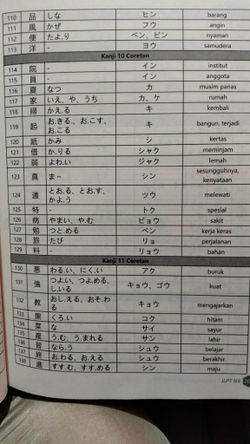 110 品 しな ヒン barang
111 風 かぜ フウ angin
112 便 たよ.り ベン、ビン nyaman
113 洋 - ヨウ samudera
Kanji 10 Coretan
114 院 - イン institut
115 員 - イン anggota
116 夏 なつ カ musim panas
117 家 いえ、や、うち カ、ケ rumah
118 帰 かえ.る キ kembali
119 起 お.きる、お.こす、 キ bangun, terjadi
お.こる
120 紙 かみ シ kertas
121 借 か.りる シャク meminjam
122 弱 よわ.い ジャク lemah
123 真 ま~ シン sesungguhnya,
kenyataan
124 通 とお.る、とお.す、 ツウ melewati
かよ.う
125 特 - トク spesial
126 病 やまい、や.む ビョウ sakit
127 勉 つと.める ベン kerja keras
128 旅 たび リョ perjalanan
129 料 - リョウ bahan
Kanji 11 Coretan
130 悪 わる.い、にく.い アク buruk
131 強 つよ.い、つよ.める、 キョウ、ゴウ kuat
し.いる
132 教 おし.える、おそ.わ キョウ mengajarkan
る
133 黒 くろ.い コク hitam
134 菜 な サイ sayur
135 産 う.む、う.まれる サン lahir
136 習 なら.う シュウ belajar
137 終 お.わる、お.える シュウ berakhir
138 進 すす.む、すす.める シン maju
JLPT N4